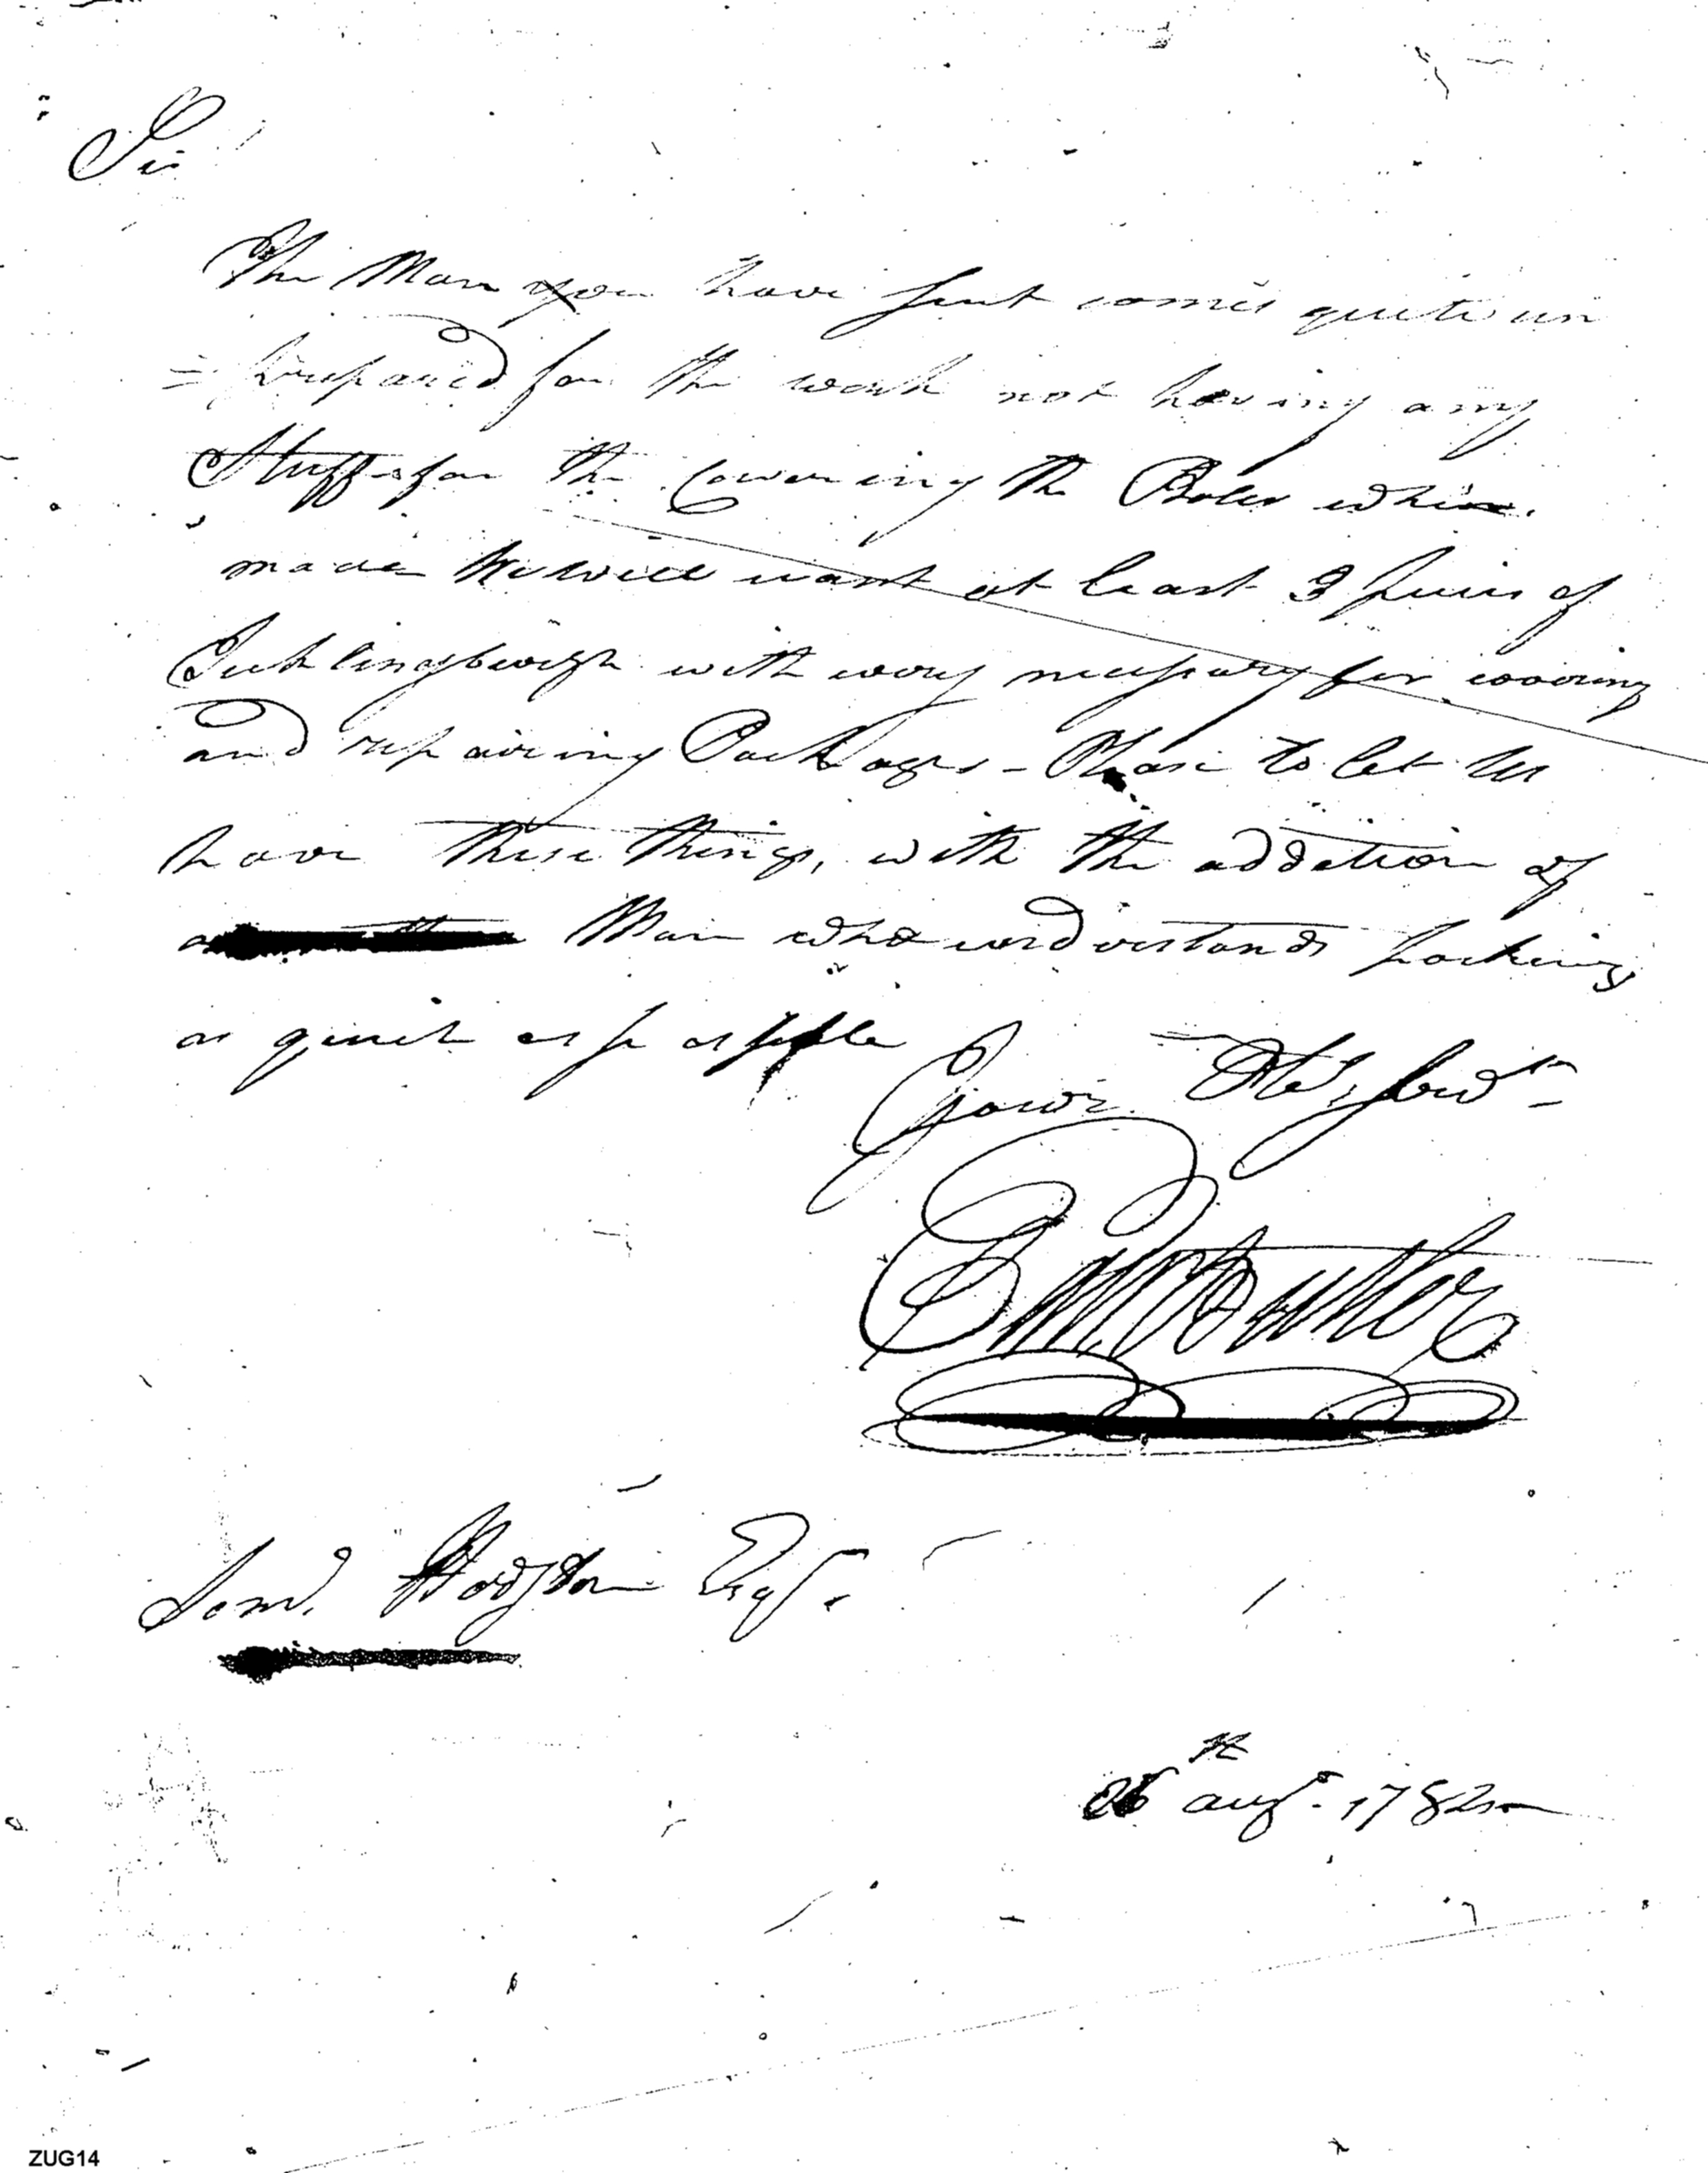 Sir
The Man you have sent comes quite un
= prepared for the work not having any
Stuffs for the Covering the Bales when
made We will want at least 3 pieces of
Ticklingburgh with every necessary for covering
and repairing Packages - Please to let us
have these things, with the addition of
a Man who understands packing
as quick as possible
Your Ob. Serv.t
Saml. Hodgson Esqr.
26th augt. 1782
ZUG14